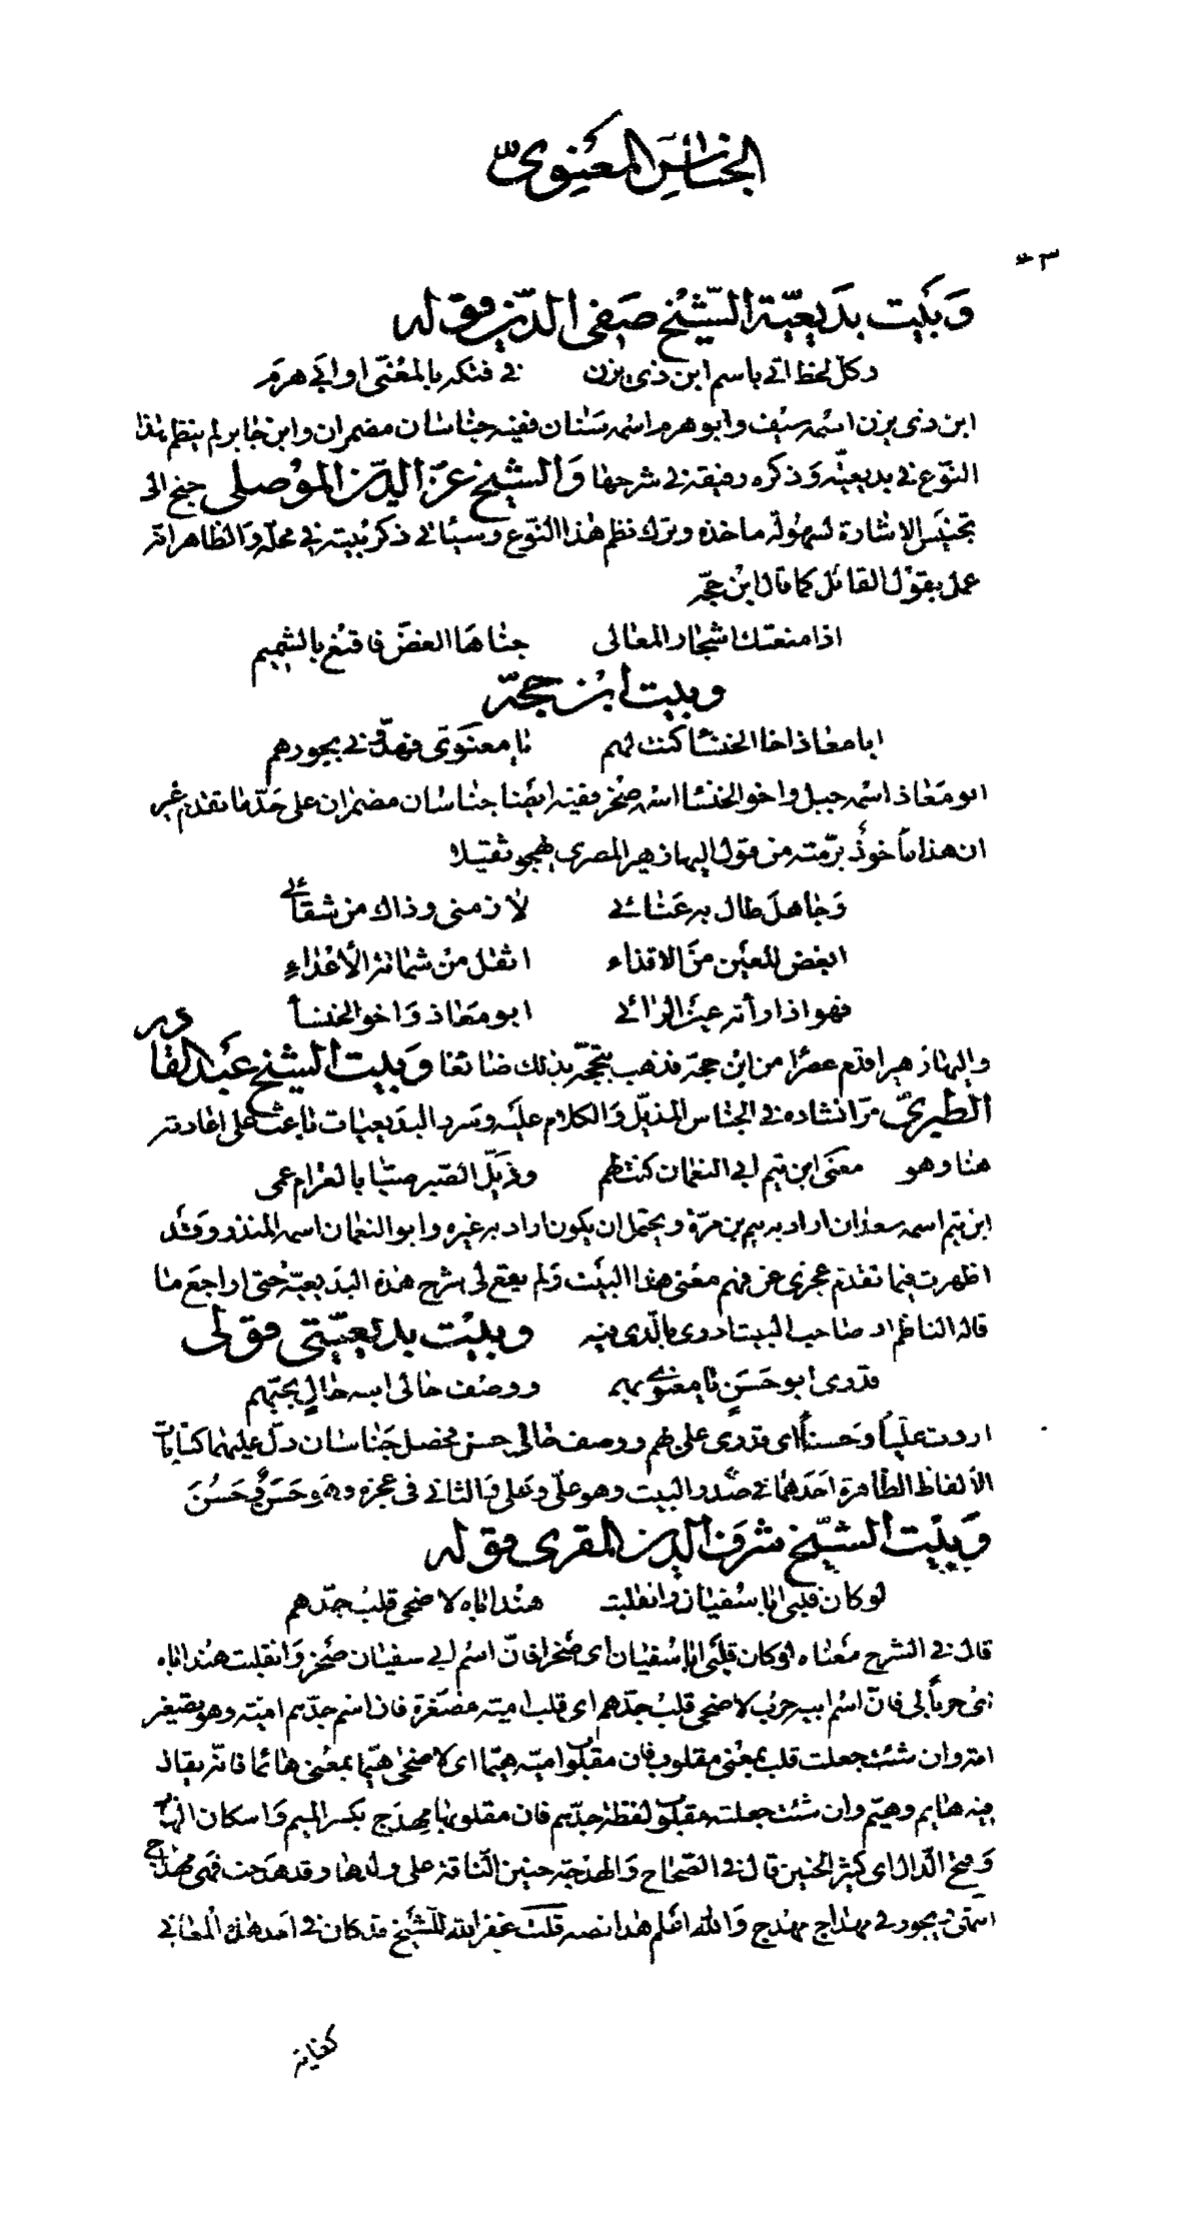 الجناس المعنوي
٣٠
وبيت بديعية الشيخ صفي الدين قوله
وكل لحظ اتى باسم ابن ذي يزن في فتكه بالمعنى او ابي هرم
ابن ذي يزن اسمه سيف وابو هرم اسمه سنان ففيه جناسان مضمران وابن جابر لم ينظم هذا
النوع في بديعيته وذكره رفيقه في شرحها والشيخ عز الدين الموصلي جنح الى
تجنيس الاشارة لسهولة ماخذه وترك نظم هذا النوع وسياتي ذكر بيته في محله والظاهر انه
عمل بقول القائل كما قال ابن حجه
اذا منعتك اشجار المعالى جناها الغض فاقنع بالشميم
وبيت ابن حجة
ابا معاذ اخا الخنسا كنت لهم يا معنوي فهدوني بجورهم
ابو معاذ اسمه جبل واخو الخنسا اسمه صخر ففيه ايضا جناسان مضمران على حد ما تقدم غير
ان هذا ماخوذ برمته من قول البها زهير المصري يهجو ثقيلا
وجاهل طال به عنائي لازمني وذاك من شقائي
ابغض للعين من الاقذاء اثقل من شماتة الأعداء
فهو اذا رأته عين الرائي ابو معاذ واخو الخنسأ
والبها زهير اقدم عصرا من ابن حجة فذهب تبجحه بذلك ضائعا وبيت الشيخ عبد القادر
الطبري مر انشاده في الجناس المذيل والكلام عليه وسرد البديعيات باعث على اعادته
هنا وهو معنى ابن تيم ابي النعمان كنت لهم وذيل الصبر صبا بالغرام عمى
ابن تيم اسمه سعد ان اراد به تيم بن مرة ويحتمل ان يكون اراد به غيره وابو النعمان اسمه المنذر وقد
اظهرت فيما تقدم عجزى عن فهم معنى هذا البيت ولم يقع لي شرح هذه البديعية حتى اراجع ما
قاله الناظم اد صاحب البيت ادرى بالذى فيه وبيت بديعيتي قولى
قدرى ابو حسن يا معنوي بهم ووصف حالى ابنه حال بحبهم
اردت عليا وحسناً اى قدرى على بهم ووصف حالى حسن فحصل جناسان دل عليهما كنايات
الألفاظ الظاهرة احدهما في صدر البيت وهو علي وعلي والثاني في عجزه وهو حسن وحسن
وبيت الشيخ شرف الدين المقرى قوله
لو كان قلبي ابا سفيان وانقلبت هند اباه لاضحى قلب جدهم
قال في الشرح معناه لو كان قلبي ابا سفيان اى صخرا فان اسم ابي سفيان صخر وانقلبت هند اباه
اى حربا لى فان اسم ابيه حرب لاضحى قلب جدهم اى قلب امية مصغرة فان اسم جدهم امية وهو تصغير
امة وان شئت جعلت قلب بمعنى مقلوب فان مقلوب امية هيما اى لاضحى هيما بمعنى هائما فانه يقال
فيه هايم وهيم وان شئت جعلته مقلوب لفظة جدهم فان مقلوبها مهدج بكسر الميم واسكان الهاء
وفتح الدال اى كثير الحنين قال في الصحاح والهدجة حنين الناقة على ولدها وقد هدجت فهى مهداج
انتهى ويجوز في مهداج مهدج والله اعلم هذا نصه قلت غفر الله للشيخ قد كان في احد هذه المعاني
كفاية